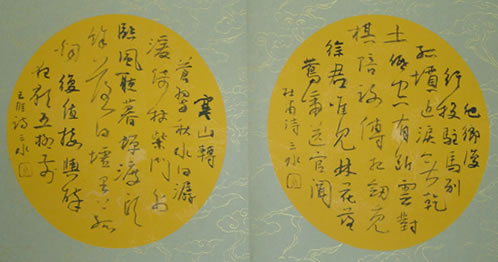 他鄉復
行役駐馬別
孤墳近淚無乾
土低空有斷雲對
棋陪謝傅把劍覓
徐君唯見林花落
鶯啼送客聞
杜甫詩之水
寒山轉
蒼翠秋水日潺
湲倚杖柴門外
臨風聽暮蟬渡頭
餘落日墟里上孤
烟復值接輿醉
狂歌五柳前
王維詩之水